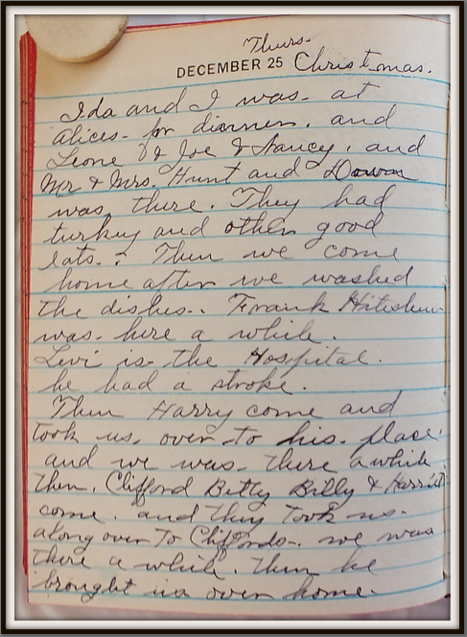 Thurs.
DECEMBER 25 Christmas.
Ida and I was at
alices. for dinner. and
Leone & Joe & Nancy. and
Mr & Mrs. Hunt and
was there. They had
turkey and other good
eats. Then we come
home after we washed
the dishes. Frank
was. here a while.
Levi is. the Hospital.
he had a stroke.
Then Harry come and
took us. over to his. place.
and we was. there a while
then. Clifford Betty Billy & Harriet
come. and they took us.
along over to Cliffords. we was
there a while. then he
brought us over home.